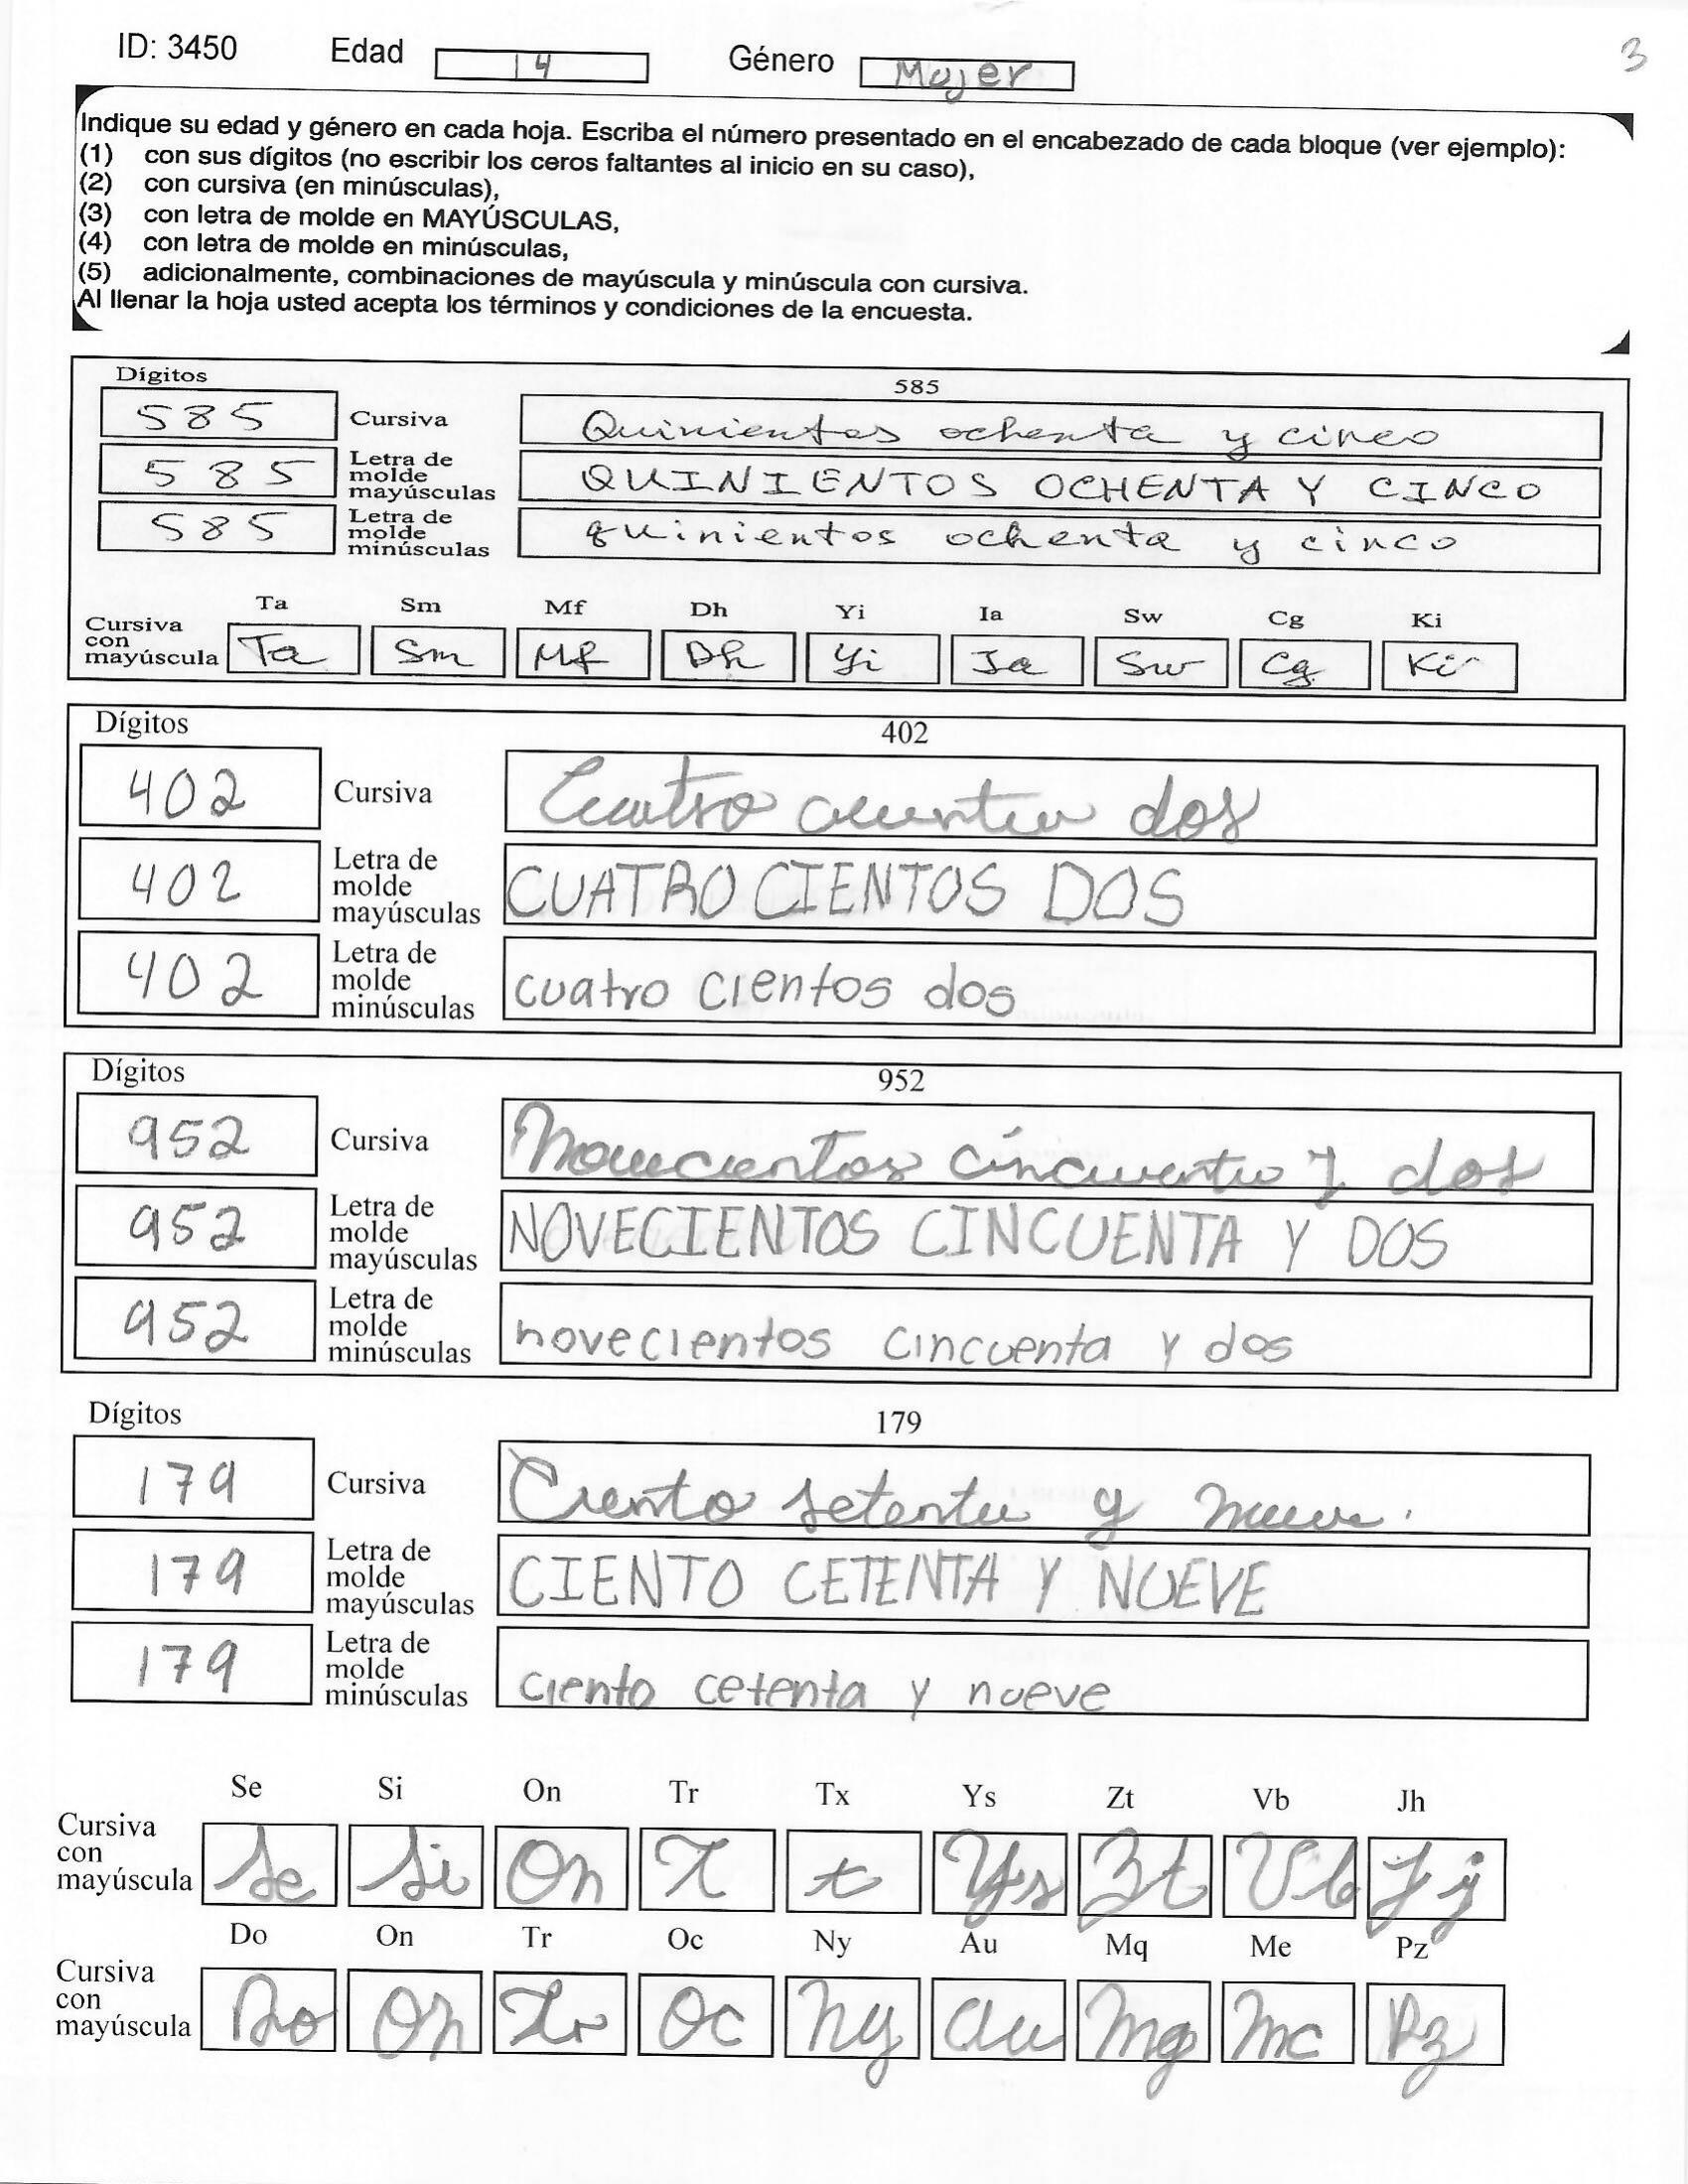 ID: 3450 Edad 14 Género Mujer 3
Indique su edad y género en cada hoja. Escriba el número presentado en el encabezado de cada bloque (ver ejemplo):
(1) con sus dígitos (no escribir los ceros faltantes al inicio en su caso),
(2) con cursiva (en minúsculas),
(3) con letra de molde en MAYÚSCULAS,
(4) con letra de molde en minúsculas,
(5) adicionalmente, combinaciones de mayúscula y minúscula con cursiva.
Al llenar la hoja usted acepta los términos y condiciones de la encuesta.
Dígitos 585
585 Cursiva Quinientos ochenta y cinco
585 Letra de molde mayúsculas QUINIENTOS OCHENTA Y CINCO
585 Letra de molde minúsculas quinientos ochenta y cinco
Ta Sm Mf Dh Yi Ia Sw Cg Ki
Cursiva con mayúscula Ta Sm Mf Dh Yi Ia Sw Cg Ki
Dígitos 402
402 Cursiva Cuatro dos
402 Letra de molde mayúsculas CUATRO CIENTOS DOS
402 Letra de molde minúsculas cuatro cientos dos
Dígitos 952
952 Cursiva Novecientos cincuenta y dos
952 Letra de molde mayúsculas NOVECIENTOS CINCUENTA Y DOS
952 Letra de molde minúsculas novecientos cincuenta y dos
Dígitos 179
179 Cursiva Ciento setenta y nueve.
179 Letra de molde mayúsculas CIENTO CETENTA Y NUEVE
179 Letra de molde minúsculas ciento cetenta y nueve
Se Si On Tr Tx Ys Zt Vb Jh
Cursiva con mayúscula Se Si On T t Ys Zt Vb Jj
Do On Tr Oc Ny Au Mq Me Pz
Cursiva con mayúscula Do On Tr Oc Ny au Mq Mc Pz